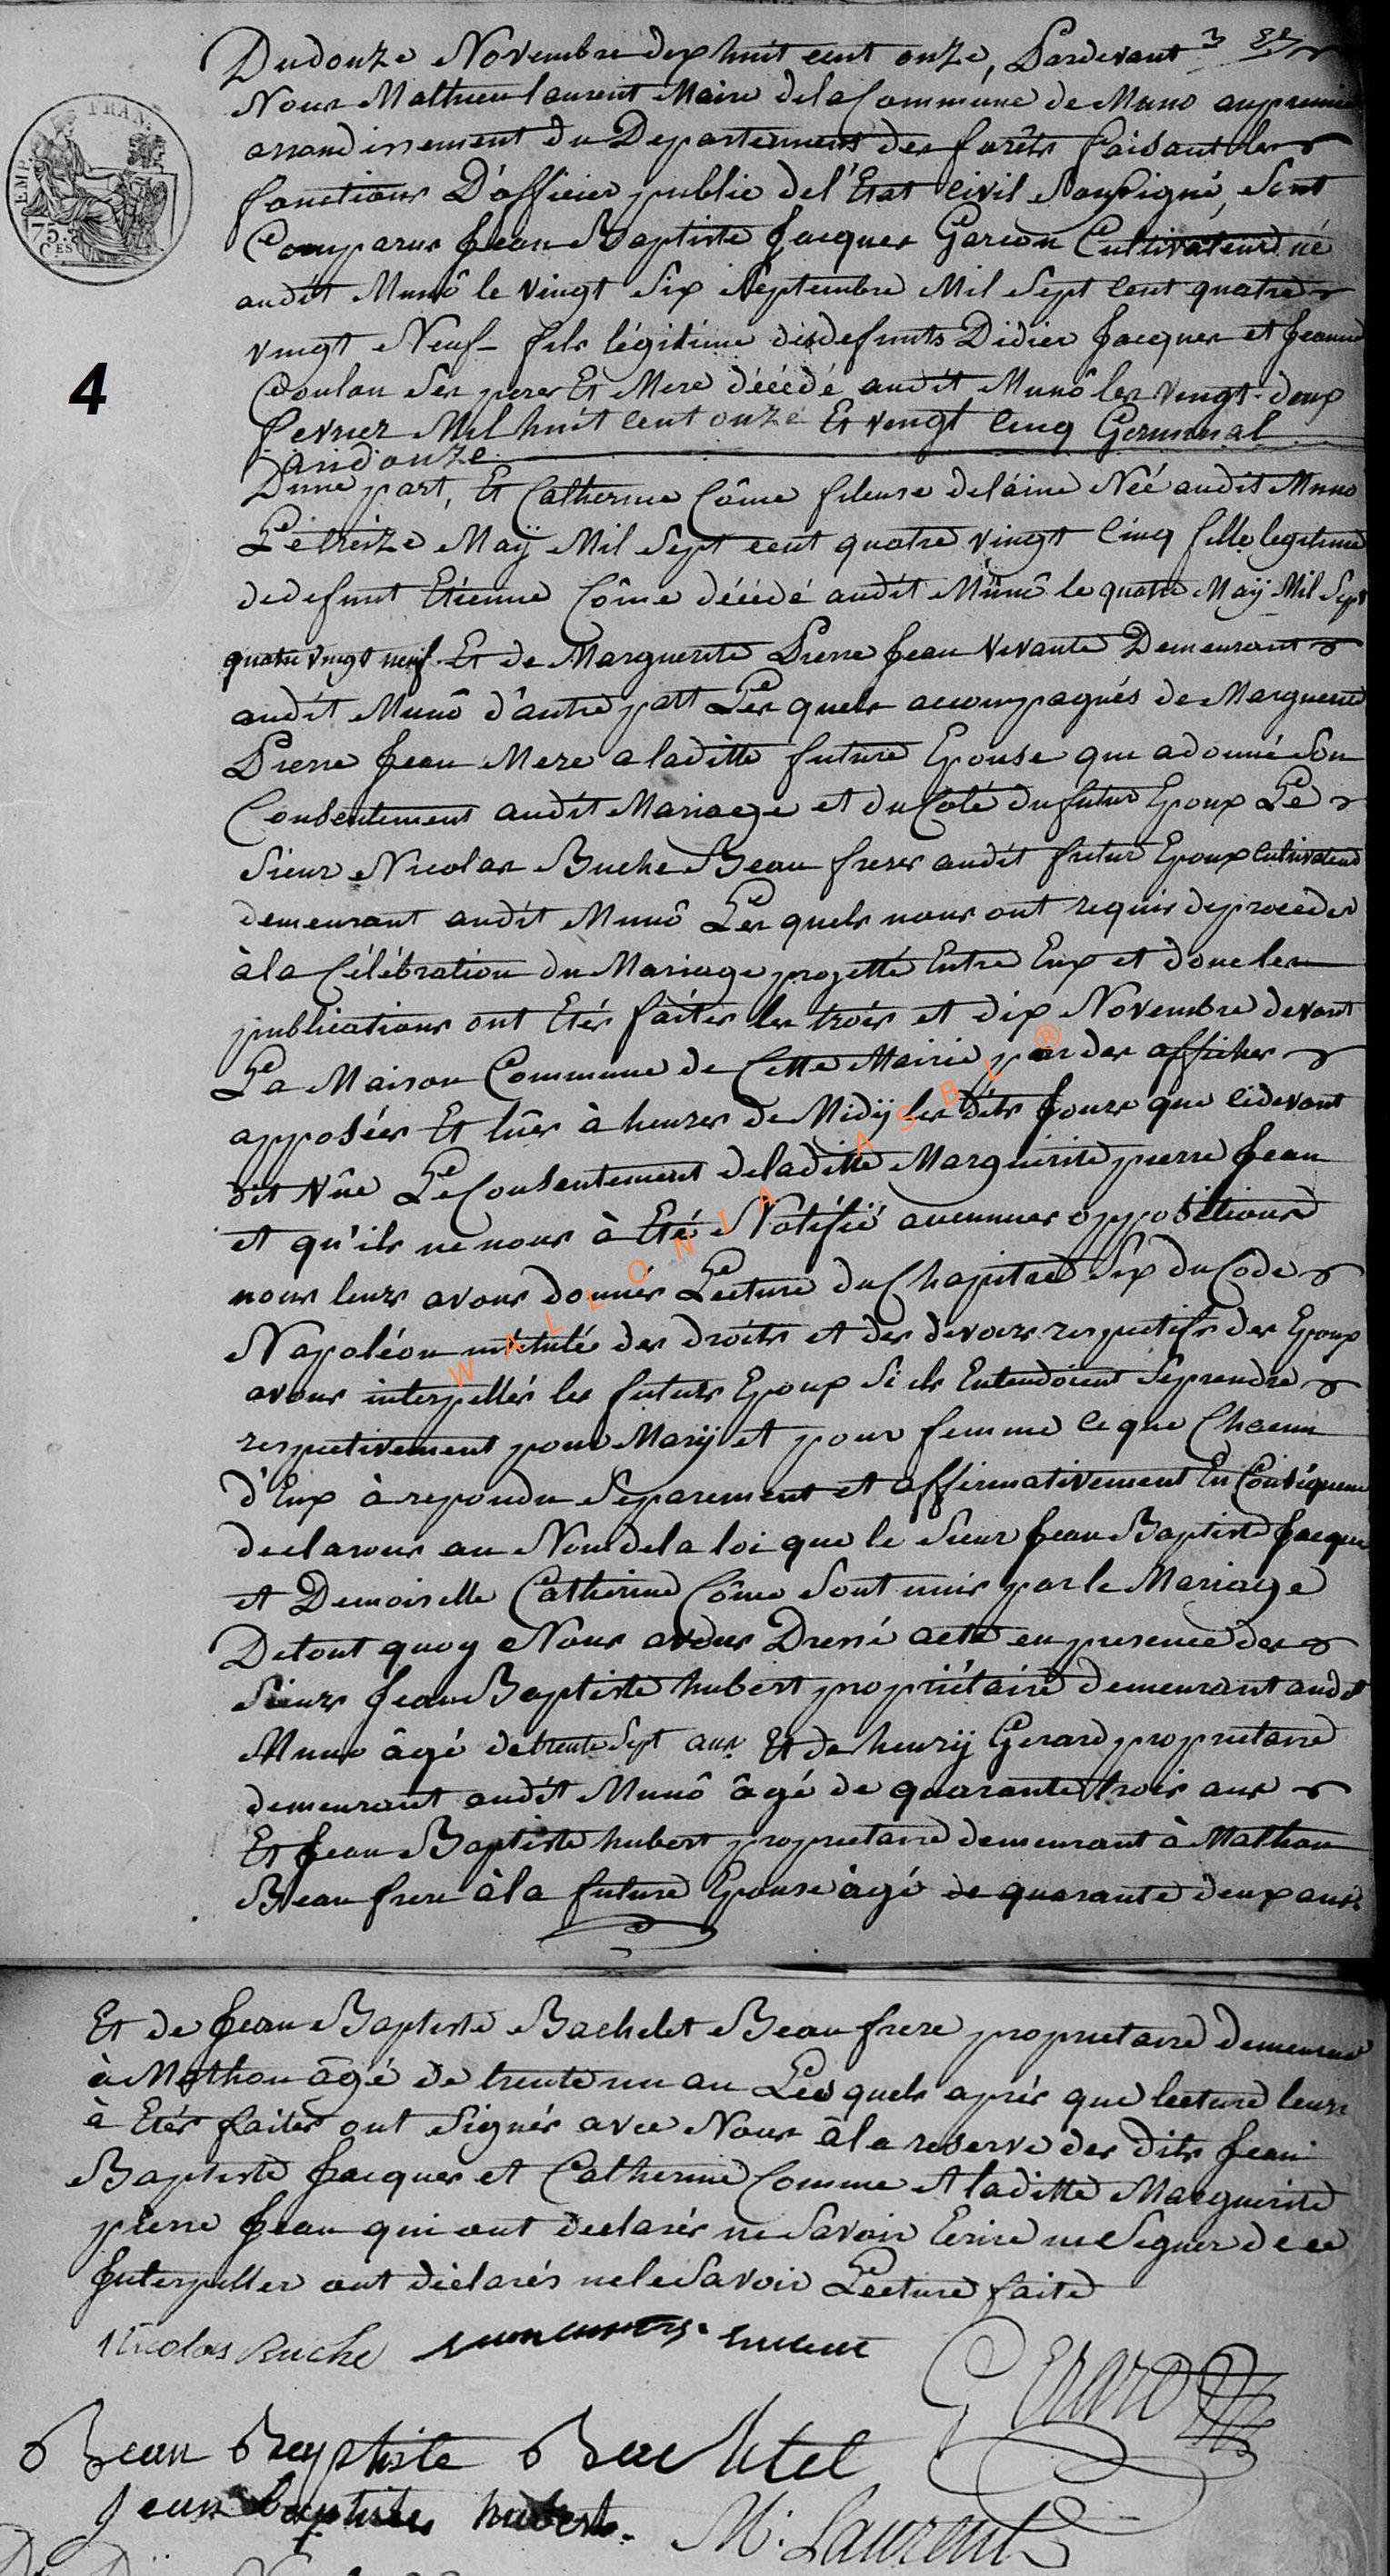 Dudouze Novembre dix huit cent onze, Pardevant
Nous Mathieu laurent Maire dela Commune de Muno au premier
arrondissement du Departement des forêts faisant les
fonctions D'officier public de l'Etat Civil Soussigné, Sont
Comparus Jean Baptiste Jacques Garcon Cultivateur né
audit Munô le vingt Six Septembre Mil Sept Cent quatre
vingt Neuf fils légitime desdefunts Didier Jacques et Jeanne
Coulon Ses peres Et Mere décédé audit Munô les vingt-deux
fevrier Mil huit cent onze Et vingt Cinq Germinal
an douze
Dune part, Et Catherine Côme fileuse delaine Née audit Muno
Le treize Maÿ Mil Sept cent quatre vingt Cinq fille legitime
dedefunt Etienne Côme décédé audit Munô le quatre Maÿ Mil Sept
quatre vingt neuf Et de Marguerite Pierre Jean vivante Demeurant
audit Munô d'autre part Les quels accompagnés de Marguerite
Pierre Jean Mere a laditte future Epouse qui a donné Son
Consentement audit Mariage et du Coté dufutur Epoux Le
Sieur Nicolas Buche Beau frere audit futur Epoux Cultivateur
demeurant audit Munô Les quels nous ont requis deproceder
à la Célébration du Mariage projetté Entre Eux et donc les
publications ont Etés faites les trois et dix Novembre devant
La Maison Commune de Cette Mairie par des affiches
apposées Et lûes à heures de Midÿ les dits Jours que cidevant
dit Vûe Le Consentement deladitte Marguerite pierre Jean
et qu'ils ne nous à Eté Notifié aucunnes oppositions
nous leurs avons donnés Lecture du Chapitre Six du Code
Napoléon intitulé des droits et des devoirs respectifs des Epoux
avons interpellés les futurs Epoux Si ils Entendoient Seprendre
respectivement pour Marÿ et pour femme Ce que Chacun
d'Eux à repondu Separement et affirmativement En Conséquence
declarons au Nom dela loi que le Sieur Jean Baptiste Jacques
et Demoiselle Catherine Côme Sont unis par le Mariage
Detout quoy Nous avons Dressé acte en presence des
Sieurs Jean Baptiste hubert propriétaire demeurant audit
Muno âgé detrente Sept ans Et de henrÿ Gerard proprietaire
demeurant audit Munô âgé de quarante trois ans
Et Jean Baptiste hubert proprietaire demeurant à Mathon
Beau frere à la future Epouse âgé de quarante deux ans
Et de Jean Baptiste Bachelet Beau frere proprietaire demeurant
à Mathon âgé de trente un an Les quels aprés que lecture leurs
à Etés faites ont Signés avec Nous à la reserve des dits Jean
Baptiste Jacques et Catherine Comme et laditte Marguerite
pierre Jean qui ont declarés ne Savoir Ecrire ne Signer de ce
Interpeller ont déclarés nele Savoir Lecture faite
Nicolas Buche
Gerard
Jean Baptiste Bachelet
Jean baptiste hubert. M. Laurent
4
FRAN.
75
WALLONIA ASBL ®